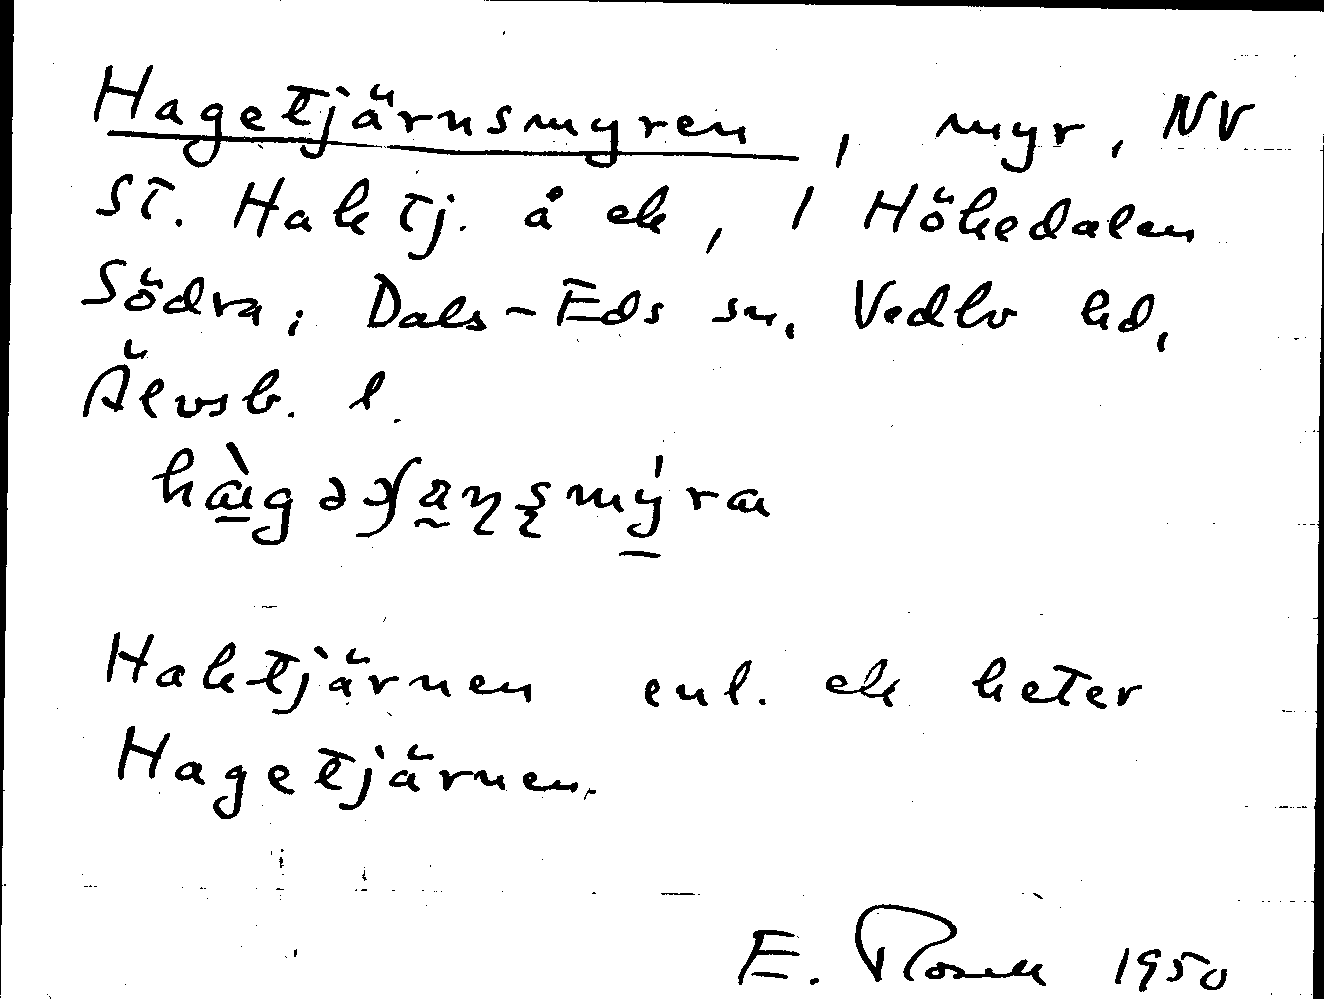 Hagetjärnsmyren, myr, NV
St. Haktj. å ek, 1 Hökedalen
Södra, Dals-Eds sn, Vedbo hd,
Älvsb. l.
Haktjärnen enl. ek heter
Hagetjärnen.
E. Rosell 1950